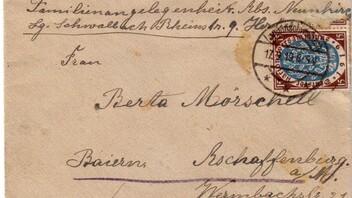 Familienangelegenheit. Kbs. Neunkirch
Lg. Schwalbach Rheinstr. 9
Frau
Berta Mörschell
Baiern Aschaffenburg
a/M.
Wermbachstr. 21